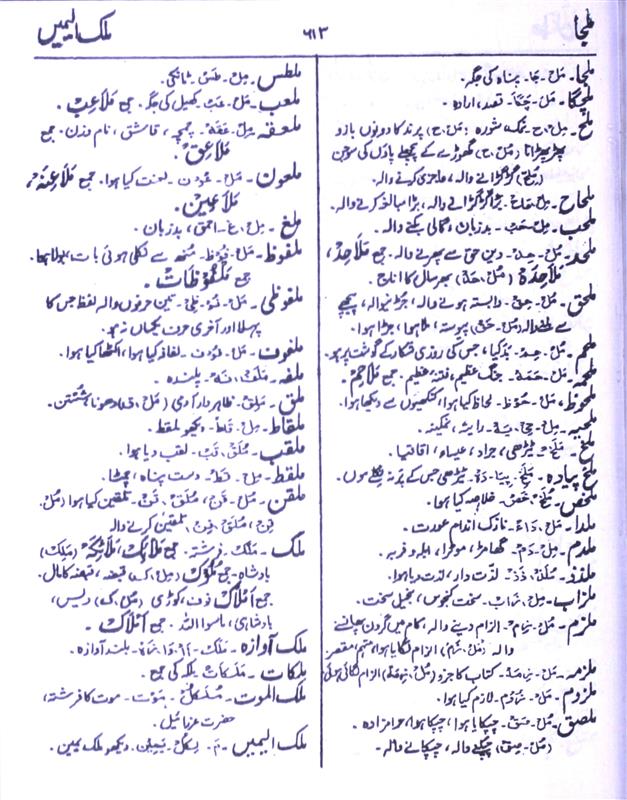 ملجا
۶۱۳
ملک الیمیں
ملجا۔ مَل٘۔ جَا۔ پناہ کی جگہ۔
ملچگا۔ مَل٘۔ چَگا۔ قصد، ارادہ۔
ملح۔ مِل٘۔ ح۔ نمک شورہ؛ (مَل٘۔ ح) پرند کا دونوں بازو
پھڑپھڑانا (مَل٘۔ ح) گھوڑے کے پچھلے پاؤں کی سوجن
گڑگڑانے والہ، عاجزی کرنے والہ۔
ملحاح۔ مِل٘۔ حَاح٘۔ بڑا گڑگڑانے والہ، بڑا مبالغہ کرنے والہ۔
ملحب۔ مِل٘۔ حَب٘۔ بدزبان، گالی بکنے والہ۔
ملحد۔ مُل٘۔ حِد٘۔ دین حق سے پھرنے والہ۔ جمع مَلَاحِدْ،
مَلَاحِدَہْ (مُل٘۔ حَد٘) بھر سال کا اناج۔
ملحق۔ مُل٘۔ حِق٘۔ وابستہ ہونے والہ، جڑنیوالہ، پیچھے
سے ملنے والہ (مُل٘۔ حَق٘) پیوستہ، ملا ہوا، جڑا ہوا۔
ملحم۔ جس کی روزی شکار کے گوشت پر ہو۔
ملحمہ۔ مَل٘۔ حَمَہ٘۔ جنگ عظیم، فتنہ عظیم۔ جمع مَلَاحِمْ۔
ملحوظ۔ مَل٘۔ حُوظ٘۔ لحاظ کیا ہوا، کنکھیوں سے دیکھا ہوا۔
کمینہ۔
ملخ۔ مَلَخ٘۔ ٹیڑھی، جراد،
ملخ پیادہ۔ مَلَخ٘۔ پِیَا۔ دَہ٘۔ ٹیڑھی جس کے پر نہ نکلے ہوں۔
ملخص۔ مُلَخ٘۔ خَص٘۔ خلاصہ کیا ہوا۔
ملدا۔ مَل٘۔ دَاء٘۔ نازک اندام عورت۔
ملدم۔ مِل٘۔ دَم٘۔ گھامڑ، موگرا، ابلہ و فربہ۔
ملذذ۔ مُلَذ٘۔ ذَذ٘۔ لذّت دار، لذت دیا ہوا۔
ملزاب۔ مِل٘۔ زَاب٘۔ سخت کنجوس، بخیل سخت۔
ملزم۔ مُل٘۔ زِم٘۔ الزام دینے والہ، کام میں گردن پھانسنے
والہ (مُل٘۔ زَم٘) الزام لگایا ہوا، متہم، مقصر
ملزمہ۔ مَل٘۔ زِمَہ٘۔ کتاب کا جزو (مُل٘۔ زَمَہ٘) الزام لگائی ہوئی
ملزوم۔ مَل٘۔ زُوم٘۔ لازم کیا ہوا۔
ملصق۔ مُل٘۔ صَق٘۔ چپکایا ہوا، چپکا ہوا، حرامزادہ۔
(مُل٘۔ صِق٘) چپکنے والہ، چپکانے والہ۔
ملطس۔ مِل٘۔ طَس٘۔ ٹانکی۔
ملعب۔ مَل٘۔ عَب٘۔ کھیل کی جگہ۔ جمع مَلَاعِبْ۔
ملعقہ۔ مِل٘۔ عَقَہ٘۔ چمچہ، قاشق، نام وزن۔ جمع
مَلَاعِقْ۔
ملعون۔ مَل٘۔ عُون٘۔ لعنت کیا ہوا۔ جمع مَلَاعِنَہْ،
مَلَاعِیْن۔
ملغ۔ مِل٘۔ غ۔ احمق، بدزبان۔
ملفوظ۔ مَل٘۔ فُوظ٘۔ منھ سے نکلی ہوئی بات، بولا ہوا۔
جمع مَلْفُوْظَات۔
ملفوظی۔ مَل٘۔ فُو۔ ظِی۔ تین حرفوں والہ لفظ جس کا
پہلا اور آخری حرف یکساں نہ ہو۔
ملفوف۔ مَل٘۔ فُوف٘۔ لفافہ کیا ہوا، اکٹھا کیا ہوا۔
ملفہ۔ پلندہ۔
ملق۔ مَلِق٘۔ ظاہردار آدمی (مَل٘۔ ق) دھونا
ملقاط۔ مِل٘۔ قَاط٘۔ دیکھو ملقط۔
ملقب۔ مُلَق٘۔ قَب٘۔ لقب دیا ہوا۔
ملقط۔ مِل٘۔ قَط٘۔ دست پناہ، چمٹا۔
ملقن۔ مُل٘۔ قَن٘، مُلَق٘۔ قَن٘۔ تلقین کیا ہوا (مُل٘۔
قِن٘، مُلَق٘۔ قِن٘) تلقین کرنے والہ
ملک۔ مَلَک٘۔ فرشتہ۔ جمع مَلَائِک، مَلَائِکَہْ (مَلِک٘)
بادشاہ۔ جمع مُلُوْک (مِل٘۔ ک) قبضہ، قبضہ کا مال۔
جمع اَمْلَاک (مُل٘۔ ک) دیس،
بادشاہی، ماسوا اللہ۔ جمع اَمْلَاک۔
ملک آوازہ۔ مَلَک٘۔ آ۔ وَا۔ زَہ٘۔ بلند آوازہ۔
ملکات۔ مَلَکَات٘۔ ملکہ کی جمع۔
ملک الموت۔ مَلَکُل٘۔ مَوت٘۔ موت کا فرشتہ،
حضرت عزرائیل۔
ملک الیمیں۔ دیکھو ملک یمین۔